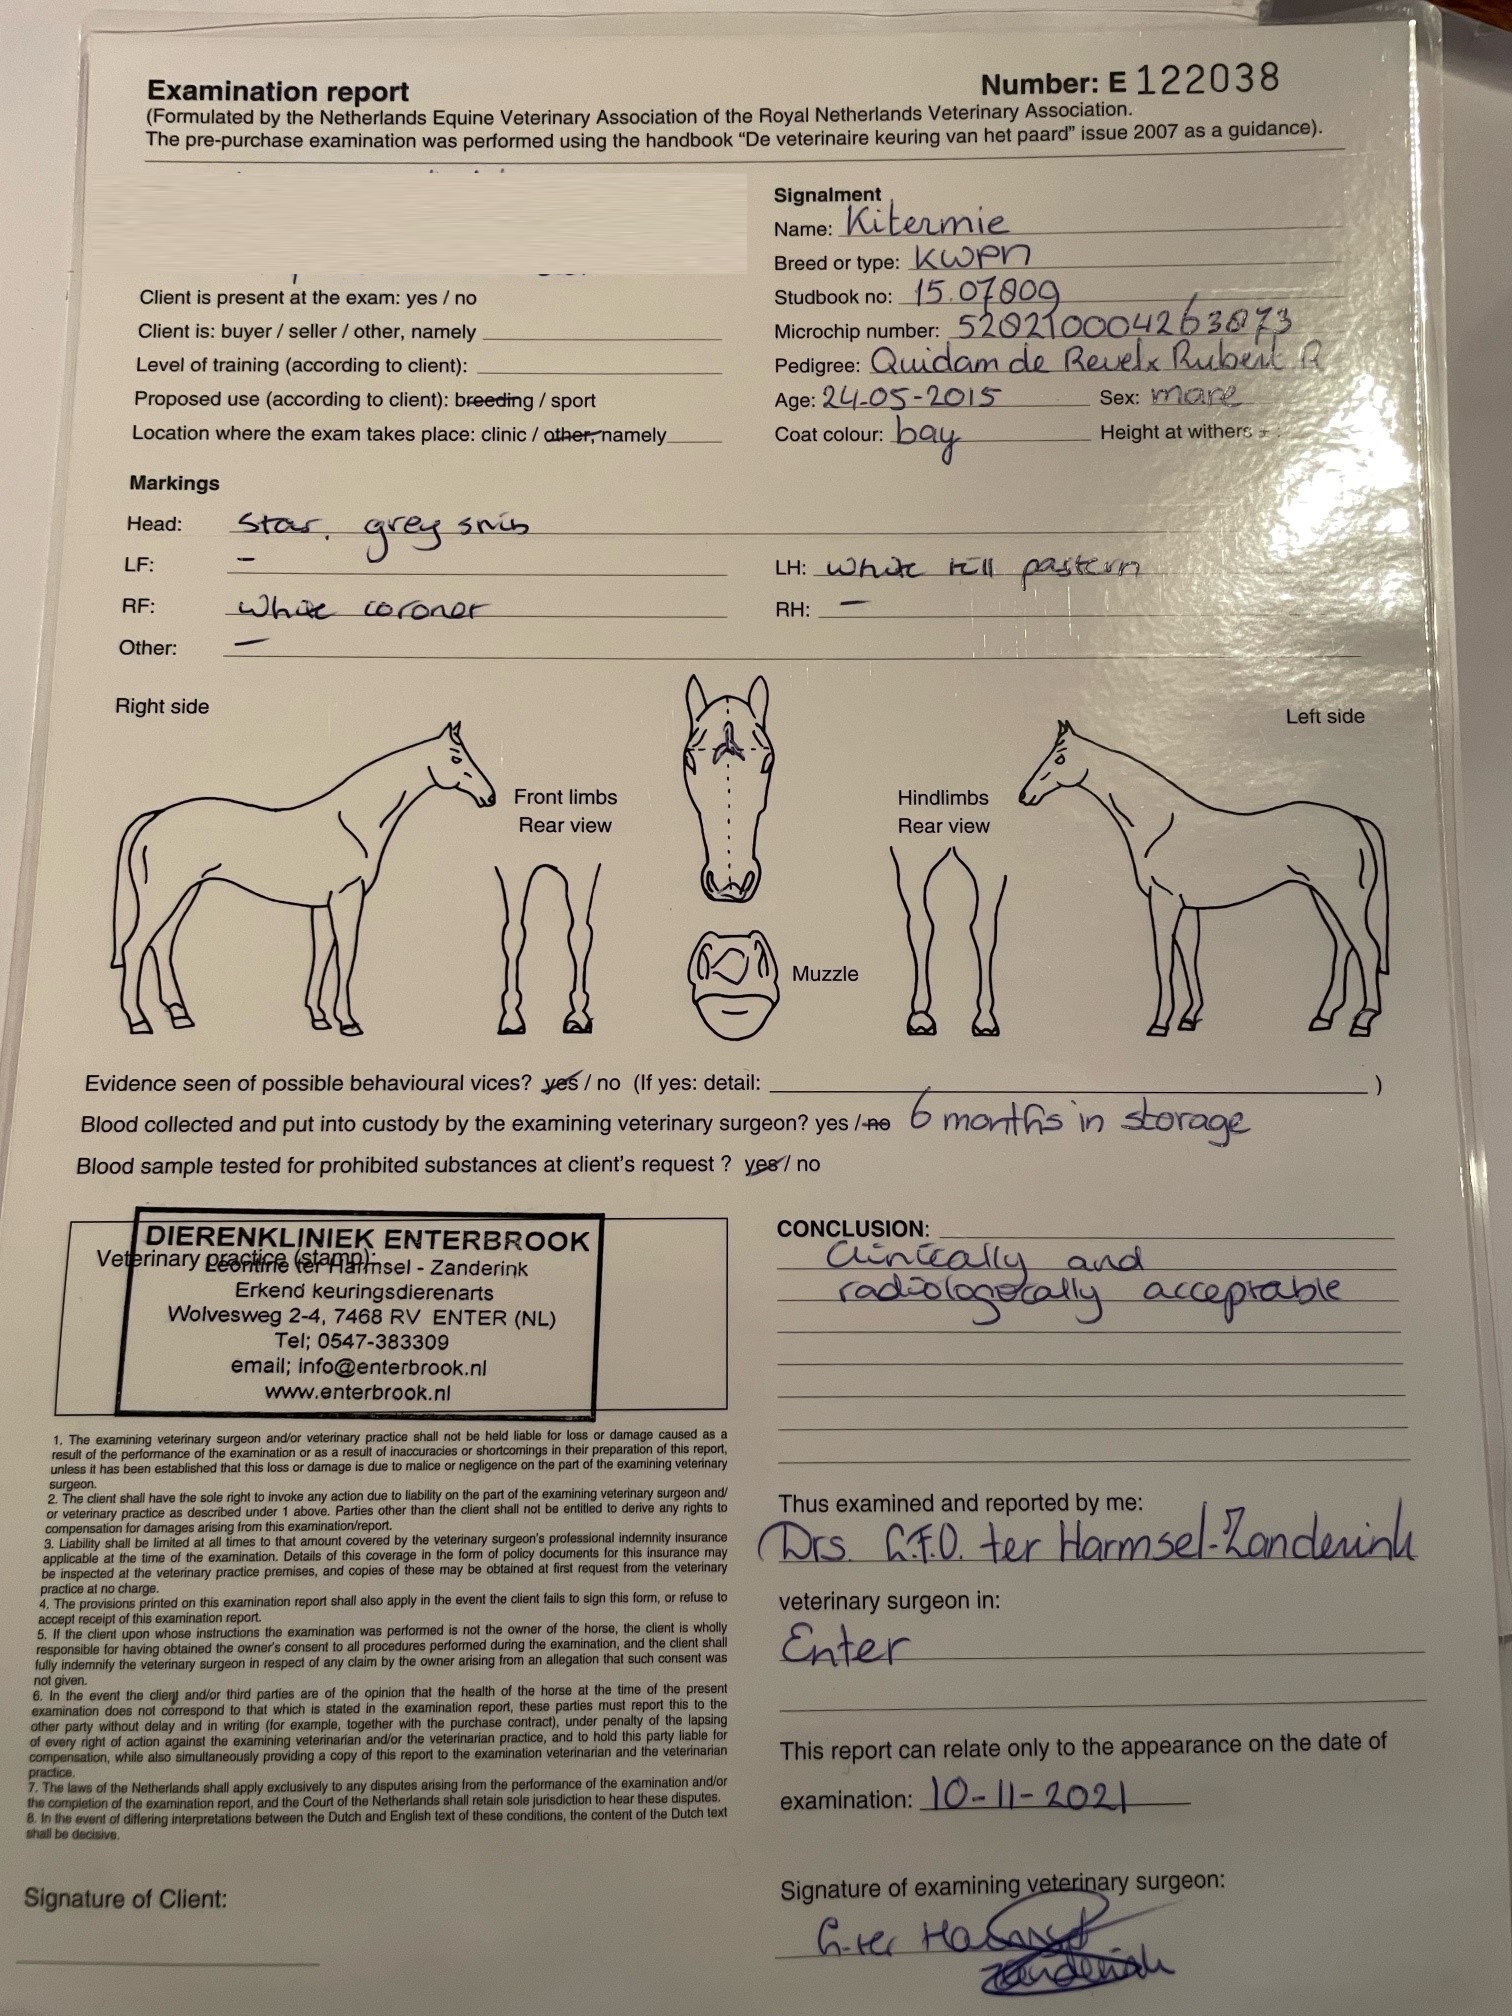 Examination report
Number: E 122038
(Formulated by the Netherlands Equine Veterinary Association of the Royal Netherlands Veterinary Association.
The pre-purchase examination was performed using the handbook "De veterinaire keuring van het paard" issue 2007 as a guidance).
Signalment
Name: Kitermie
Breed or type: KWPN
Studbook no: 15.07809
Microchip number: 528210004263873
Pedigree: Quidam de Revel x Rubert R
Age: 24-05-2015 Sex: mare
Coat colour: bay Height at withers
Client is present at the exam: yes / no
Client is: buyer / seller / other, namely
Level of training (according to client):
Proposed use (according to client): breeding / sport
Location where the exam takes place: clinic / other, namely
Markings
Head: star, grey snib
LF: -
LH: white till pastern
RF: white coronet
RH: -
Other: -
Right side
Left side
Front limbs
Rear view
Hindlimbs
Rear view
Muzzle
Evidence seen of possible behavioural vices? yes / no (If yes: detail: )
Blood collected and put into custody by the examining veterinary surgeon? yes / no 6 months in storage
Blood sample tested for prohibited substances at client's request ? yes / no
Veterinary practice (stamp):
DIERENKLINIEK ENTERBROOK
Leontine ter Harmsel - Zanderink
Erkend keuringsdierenarts
Wolvesweg 2-4, 7468 RV ENTER (NL)
Tel; 0547-383309
email; info@enterbrook.nl
www.enterbrook.nl
CONCLUSION:
Clinically and
radiologically acceptable
1. The examining veterinary surgeon and/or veterinary practice shall not be held liable for loss or damage caused as a
result of the performance of the examination or as a result of inaccuracies or shortcomings in their preparation of this report,
unless it has been established that this loss or damage is due to malice or negligence on the part of the examining veterinary
surgeon.
2. The client shall have the sole right to invoke any action due to liability on the part of the examining veterinary surgeon and/
or veterinary practice as described under 1 above. Parties other than the client shall not be entitled to derive any rights to
compensation for damages arising from this examination/report.
3. Liability shall be limited at all times to that amount covered by the veterinary surgeon's professional indemnity insurance
applicable at the time of the examination. Details of this coverage in the form of policy documents for this insurance may
be inspected at the veterinary practice premises, and copies of these may be obtained at first request from the veterinary
practice at no charge.
4. The provisions printed on this examination report shall also apply in the event the client fails to sign this form, or refuse to
accept receipt of this examination report.
5. If the client upon whose instructions the examination was performed is not the owner of the horse, the client is wholly
responsible for having obtained the owner's consent to all procedures performed during the examination, and the client shall
fully indemnify the veterinary surgeon in respect of any claim by the owner arising from an allegation that such consent was
not given.
6. In the event the client and/or third parties are of the opinion that the health of the horse at the time of the present
examination does not correspond to that which is stated in the examination report, these parties must report this to the
other party without delay and in writing (for example, together with the purchase contract), under penalty of the lapsing
of every right of action against the examining veterinarian and/or the veterinarian practice, and to hold this party liable for
compensation, while also simultaneously providing a copy of this report to the examination veterinarian and the veterinarian
practice.
7. The laws of the Netherlands shall apply exclusively to any disputes arising from the performance of the examination and/or
the completion of the examination report, and the Court of the Netherlands shall retain sole jurisdiction to hear these disputes.
8. In the event of differing interpretations between the Dutch and English text of these conditions, the content of the Dutch text
shall be decisive.
Signature of Client:
Thus examined and reported by me:
Drs. L.F.O. ter Harmsel-Zanderink
veterinary surgeon in:
Enter
This report can relate only to the appearance on the date of
examination: 10-11-2021
Signature of examining veterinary surgeon:
L. ter Harmsel
Zanderink